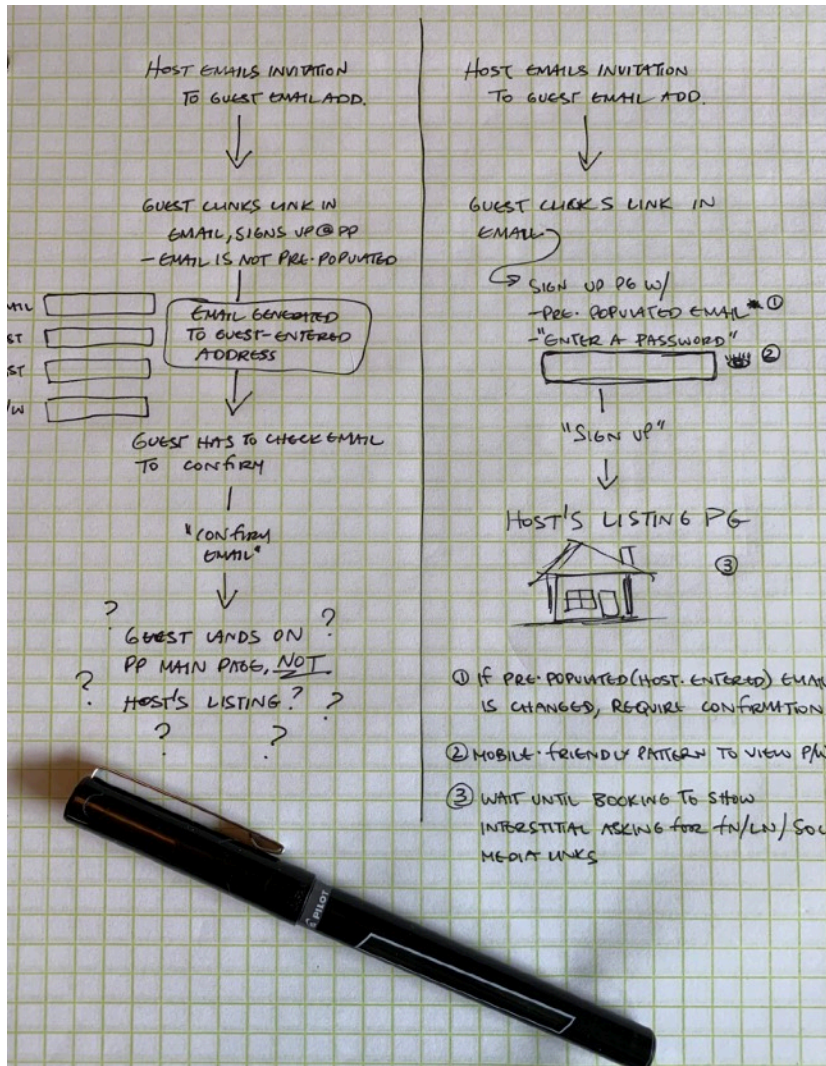 HOST EMAILS INVITATION
TO GUEST EMAIL ADD.
GUEST CLINKS LINK IN
EMAIL, SIGNS UP @ PP
- EMAIL IS NOT PRE-POPULATED
AIL
ST
ST
/W
EMAIL GENERATED
TO GUEST-ENTERED
ADDRESS
GUEST HAS TO CHECK EMAIL
TO CONFIRM
"CONFIRM
EMAIL"
? ?
GUEST LANDS ON
PP MAIN PAGE, NOT
? HOST'S LISTING? ?
? ?
HOST EMAILS INVITATION
TO GUEST EMAIL ADD.
GUEST CLICKS LINK IN
EMAIL
SIGN UP PG W/
- PRE-POPULATED EMAIL* ①
- "ENTER A PASSWORD"
②
"SIGN UP"
HOST'S LISTING PG
③
① IF PRE-POPULATED (HOST-ENTERED) EMAIL
IS CHANGED, REQUIRE CONFIRMATION
② MOBILE-FRIENDLY PATTERN TO VIEW P/W
③ WAIT UNTIL BOOKING TO SHOW
INTERSTITIAL ASKING FOR FN/LN/SOC
MEDIA LINKS
PILOT